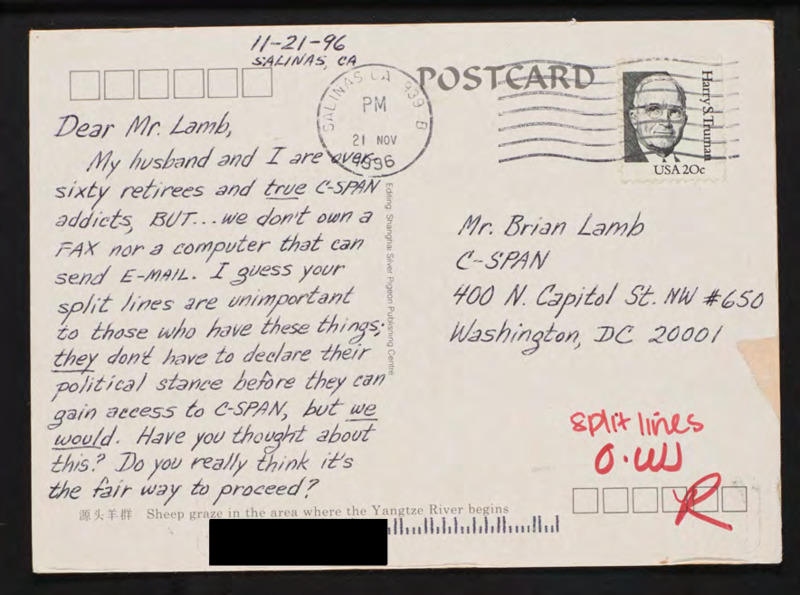 11-21-96
SALINAS, CA
POSTCARD
SALINAS CA 939
PM
21 NOV
1996
Harry S. Truman
USA 20c
Dear Mr. Lamb,
My husband and I are over-
sixty retirees and true C-SPAN
addicts, BUT... we don't own a
FAX nor a computer that can
send E-MAIL. I guess your
split lines are unimportant
to those who have these things;
they don't have to declare their
political stance before they can
gain access to C-SPAN, but we
would. Have you thought about
this? Do you really think it's
the fair way to proceed?
Editing: Shanghai Silver Pigeon Publishing Centre
Mr. Brian Lamb
C-SPAN
400 N. Capitol St. NW #650
Washington, DC 20001
split lines
R
源头羊群 Sheep graze in the area where the Yangtze River begins